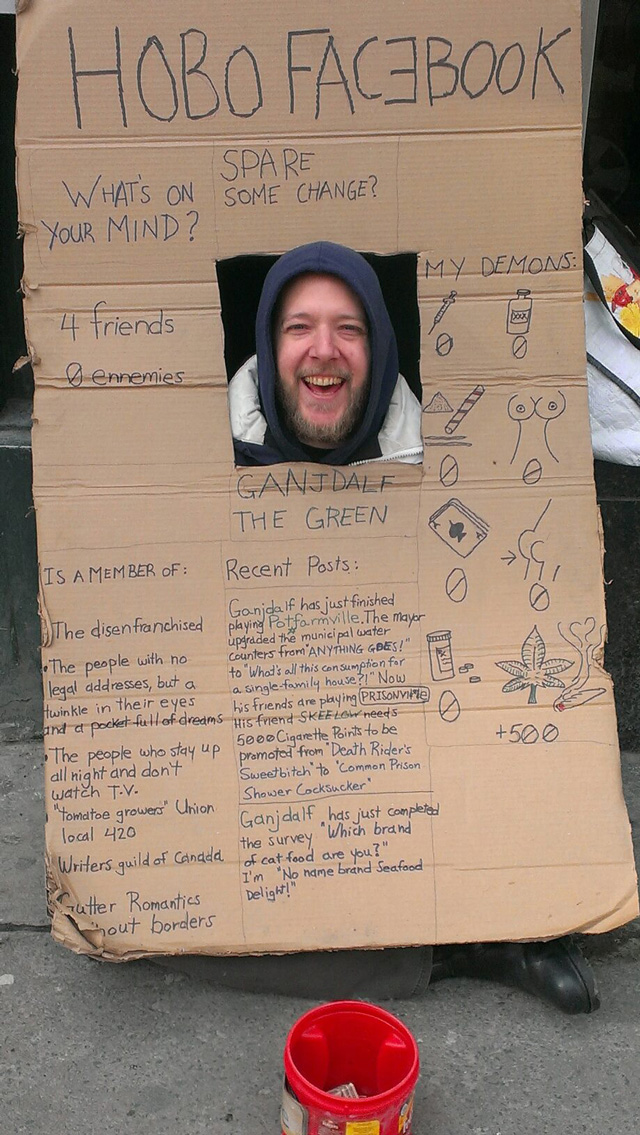 HOBO FACEBOOK
WHAT'S ON
YOUR MIND?
SPARE
SOME CHANGE?
4 friends
0 ennemies
GANJDALF
THE GREEN
MY DEMONS:
0
XXX
0
0
0
0
0
0
+500
IS A MEMBER OF:
The disenfranchised
• The people with no
legal addresses, but a
twinkle in their eyes
and a pocket full of dreams
• The people who stay up
all night and don't
watch T.V.
• "tomatoe growers" Union
local 420
Writers guild of Canada
Gutter Romantics
borders
Recent Posts:
Ganjdalf has just finished
playing Potfarmville. The mayor
upgraded the municipal water
counters from "ANYTHING GOES!"
to "What's all this consumption for
a single-family house?!" Now
his friends are playing PRISONVILLE
His friend SKEELOW needs
5000 Cigarette Points to be
promoted from "Death Rider's
Sweetbitch" to "Common Prison
Shower Cocksucker"
Ganjdalf has just completed
the survey "Which brand
of cat food are you?"
I'm "No name brand Seafood
Delight!"